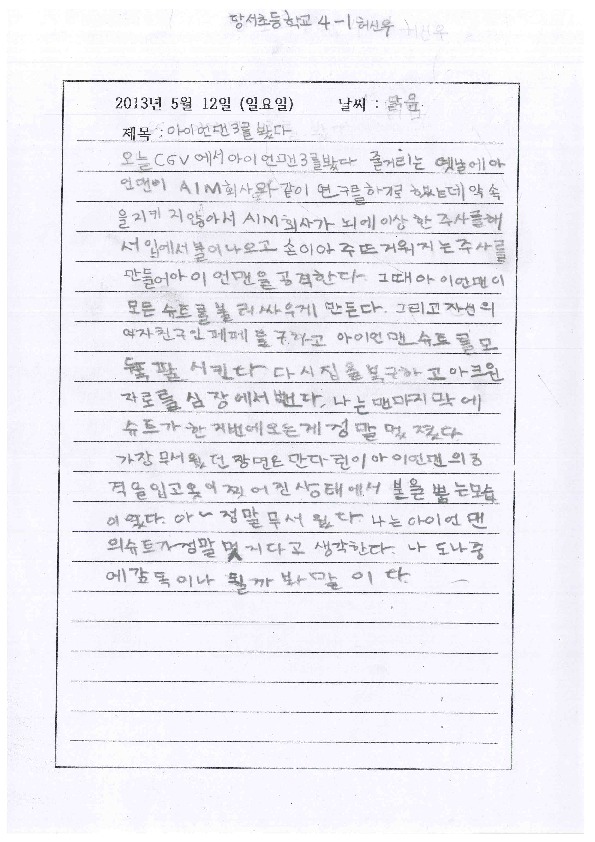 당서초등학교 4-1 허신우
2013년 5월 12일 (일요일) 날씨 : 맑음
제목 : 아이언맨3를 봤다
오늘 CGV에서 아이언맨3를 봤다 줄거리는 옛날에 아
언맨이 AIM회사와 같이 연구를 하기로 했는데 약속
을 지키지 않아서 AIM회사가 뇌에 이상한 주사를 해
서 입에서 불이 나오고 손이 아주 뜨거워지는 주사를
만들어 아이언맨을 공격한다. 그때 아이언맨이
모든 슈트를 불러 싸우게 만든다. 그리고 자신의
여자친국인 페페를 구하고 아이언맨 슈트를 모
두 폭팔 시킨다 다시 집을 복구하고 아크원
자로를 심장에서 뺀다. 나는 맨마지막에
슈트가 한거번에 오는게 정말 멋졌다
가장 무서웠던 장면은 만다린이 아이언맨의 공
격을 입고 옷이 찢어진 상태에서 불을 뿜는모습
이였다. 아~ 정말 무서웠다. 나는 아이언맨
의 슈트가 정말 멋지다고 생각한다. 나도 나중
에 감독이나 될까 봐 말이다